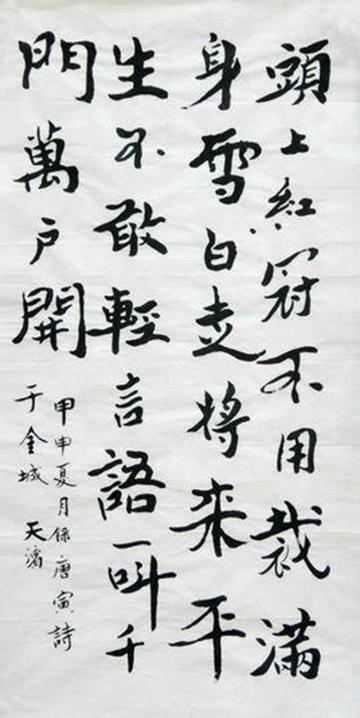 頭上紅冠不用裁滿
身雪白走將来平
生不敢輕言語一叫千
門萬户開
甲申夏月唐寅詩
于金城 天濱